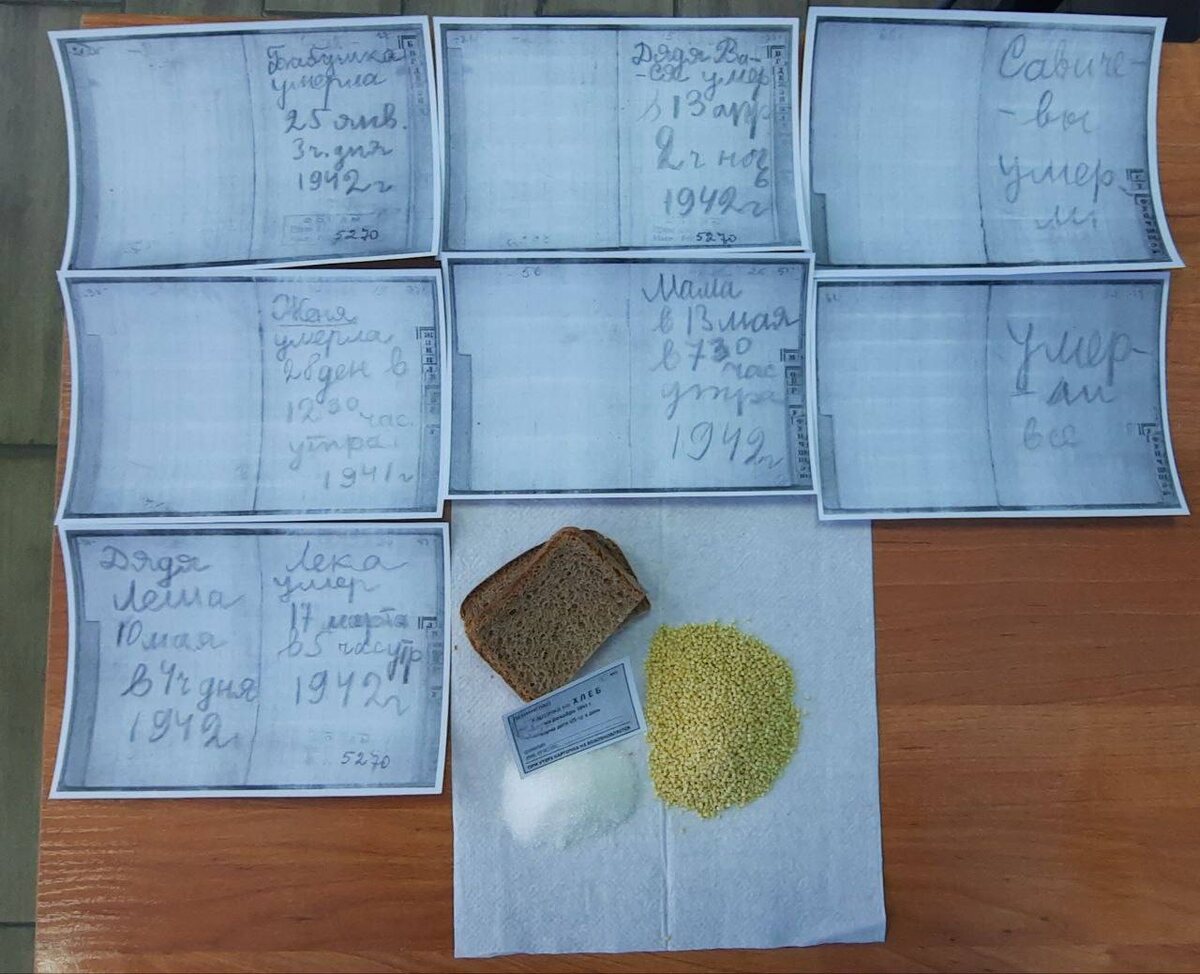 Бабушка
умерла
25 янв.
3ч. дня
1942 г
5270
Дядя Ва-
-ся умер
в 13 апр
2 ч ноч
1942 г
5270
Савиче-
-вы
умер
ли
Женя
умерла
28 ден в
12 30 час.
утра
1941 г
Мама
в 13 мая
в 7 30
час
утра
1942 г
умер-
-ли
все
Дядя
Леша
10 мая
в 4ч дня
1942 г
Лека
умер
17 марта
в 5 час утр
1942 г
5270
КАРТОЧКА НА ХЛЕБ
на декабрь 1941 г.
ПРИ УТЕРЕ КАРТОЧКА НЕ ВОЗОБНОВЛЯЕТСЯ